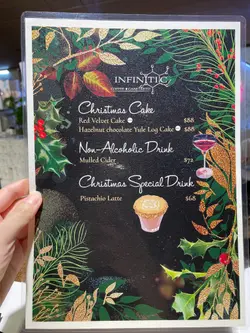 INFINITIC
Christmas Cake
Red Velvet Cake $88
Hazelnut chocolate Yule Log Cake $88
Non-Alcoholic Drink
Mulled Cider $72
Christmas Special Drink
Pistachio Latte $68